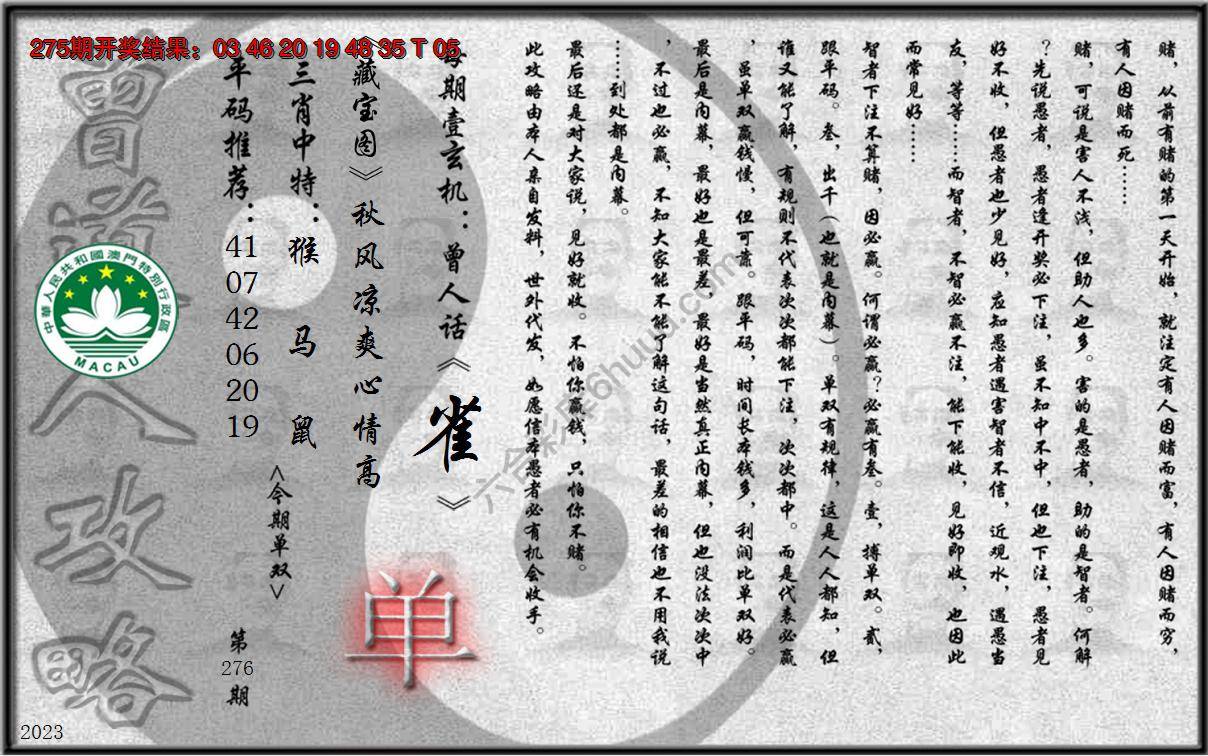 275期开奖结果：03 46 20 19 48 35 T 05
赌，从前有赌的第一天开始，就注定有人因赌而富，有人因赌而穷，
有人因赌而死……
赌，可说是害人不浅，但助人也多。害的是愚者，助的是智者。何解
？先说愚者，愚者逢开奖必下注，虽不知中不中，但也下注，愚者见
好不收，但愚者也少见好，应知愚者遇害智者不信，近观水，遇愚当
友，等等……而智者，不智必赢不注，能下能收，见好即收，也因此
而常见好……
智者下注不算赌，因必赢。何谓必赢？必赢有叁。壹，搏单双。贰，
跟平码。叁，出千（也就是内幕）。单双有规律，这是人人都知，但
谁又能了解，有规则不代表次次都能下注，次次都中。而是代表必赢
，虽单双赢钱慢，但可靠。跟平码，时间长本钱多，利润比单双好。
最后是内幕，最好也是最差，最好是当然真正内幕，但也没法次次中
，不过也必赢，不知大家能不能了解这句话，最差的相信也不用我说
……到处都是内幕。
最后还是对大家说，见好就收。不怕你赢钱，只怕你不赌。
此攻略由本人亲自发料，世外代发，如愿信本愚者必有机会收手。
每期壹玄机：曾人话《雀》
《藏宝图》秋风凉爽心情高
三肖中特：猴 马 鼠
平码推荐：41 07 42 06 20 19
<今期单双>
单
第276期
曾道人攻略
中華人民共和國澳門特別行政區
MACAU
2023